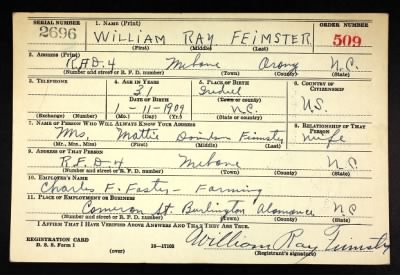 SERIAL NUMBER 1. NAME (Print) ORDER NUMBER
2696 WILLIAM RAY FEIMSTER 509
(First) (Middle) (Last)
2. ADDRESS (Print)
R.F.D-4 Mebane Orang N.C.
(Number and street or R. F. D. number) (Town) (County) (State)
3. TELEPHONE 4. AGE IN YEARS 5. PLACE OF BIRTH 6. COUNTRY OF CITIZENSHIP
31 Iredell
DATE OF BIRTH (Town or county)
1-11-1909 N.C. U.S.
(Exchange) (Number) (Mo.) (Day) (Yr.) (State or country)
7. NAME OF PERSON WHO WILL ALWAYS KNOW YOUR ADDRESS 8. RELATIONSHIP OF THAT PERSON
Mrs. Mattie Feimster Wife
(Mr., Mrs., Miss) (First) (Middle) (Last)
9. ADDRESS OF THAT PERSON
R.F.D-4 Mebane N.C.
(Number and street or R. F. D. number) (Town) (County) (State)
10. EMPLOYER'S NAME
Charles F. Foster - Farming
11. PLACE OF EMPLOYMENT OR BUSINESS
Cameron St. Burlington Alamance N.C.
(Number and street or R. F. D. number) (Town) (County) (State)
I AFFIRM THAT I HAVE VERIFIED ABOVE ANSWERS AND THAT THEY ARE TRUE.
REGISTRATION CARD
D. S. S. Form 1 (over) 16-17105 William Ray Feimster
(Registrant's signature)